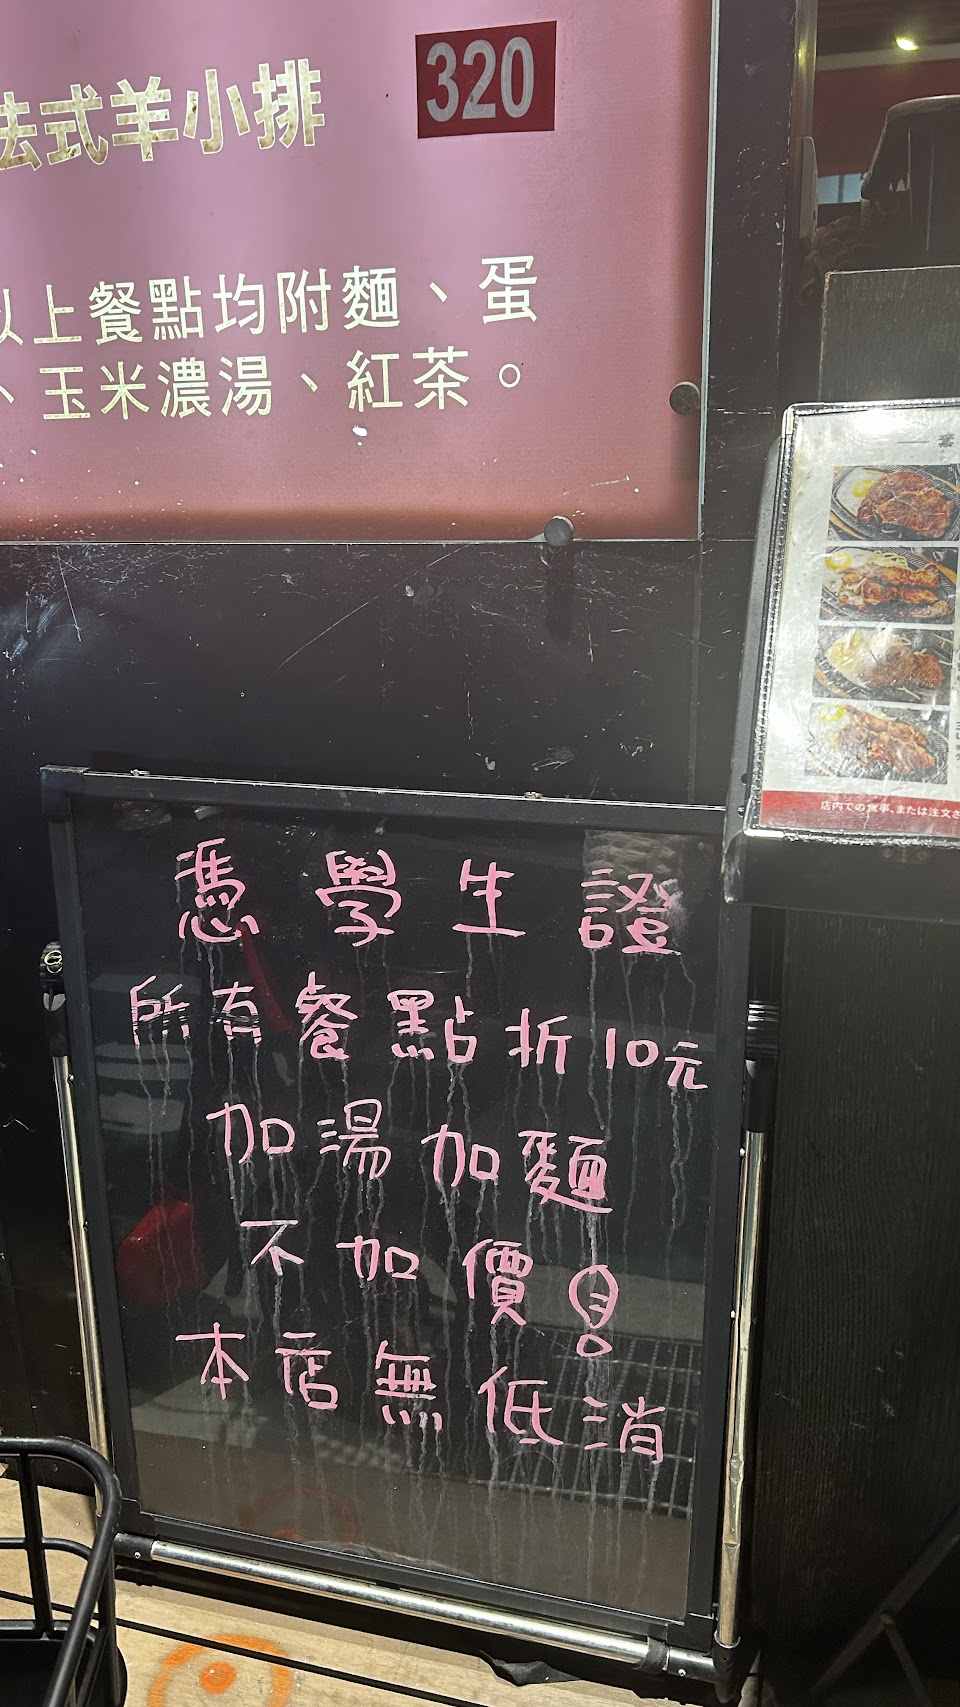 法式羊小排 320
以上餐點均附麵、蛋
、玉米濃湯、紅茶。
店内での食事、または注文さ
憑學生證
所有餐點折10元
加湯加麵
不加價!
本店無低消